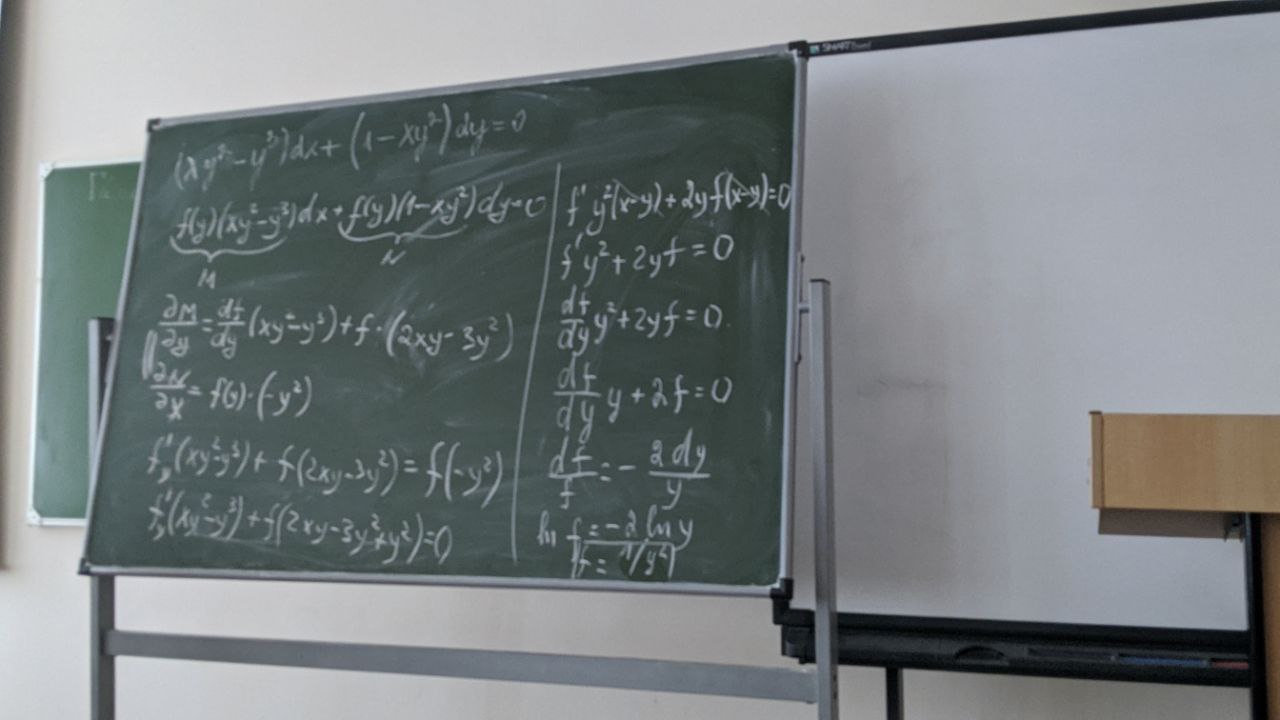 (xy²-y³)dx+(1-xy²)dy=0
f(y)(xy²-y³)dx+f(y)(1-xy²)dy=0
M N
∂M/∂y=df/dy(xy²-y³)+f·(2xy-3y²)
∂N/∂x=f(y)·(-y²)
f'y(xy²-y³)+f(2xy-3y²)=f(-y²)
f'y(xy²-y³)+f(2xy-3y²+y²)=0
f'y²(x-y)+2yf(x-y)=0
f'y²+2yf=0
df/dy y²+2yf=0
df/dy y+2f=0
df/f=-2dy/y
ln f=-2 ln y
f=1/y²
SMART Board